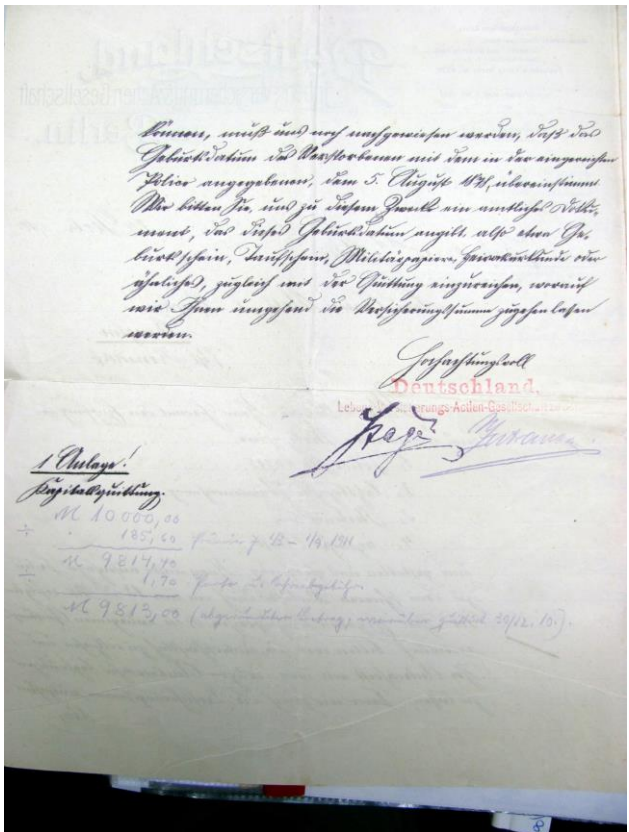 können, muß uns noch nachgewiesen werden, daß das
Geburtsdatum des Verstorbenen mit dem in der eingereichten
Police angegebenen, dem 5. August 1878, übereinstimmt.
Wir bitten Sie, uns zu diesem Zweck ein amtliches Doku-
ment, das dieses Geburtsdatum angibt, also etwa Ge-
burtsschein, Taufschein, Militärpapiere, Heiratsurkunde oder
ähnliches, zugleich mit der Quittung einzureichen, worauf
wir Ihnen umgehend die Versicherungssumme zugehen lassen
werden.
Hochachtungsvoll
Deutschland,
Lebens-Versicherungs-Actien-Gesellschaft
1 Anlage!
Kapitalquittung.
M 10.000,00
÷ 185,60
M 9814,40
÷ 1,70
M 9813,00